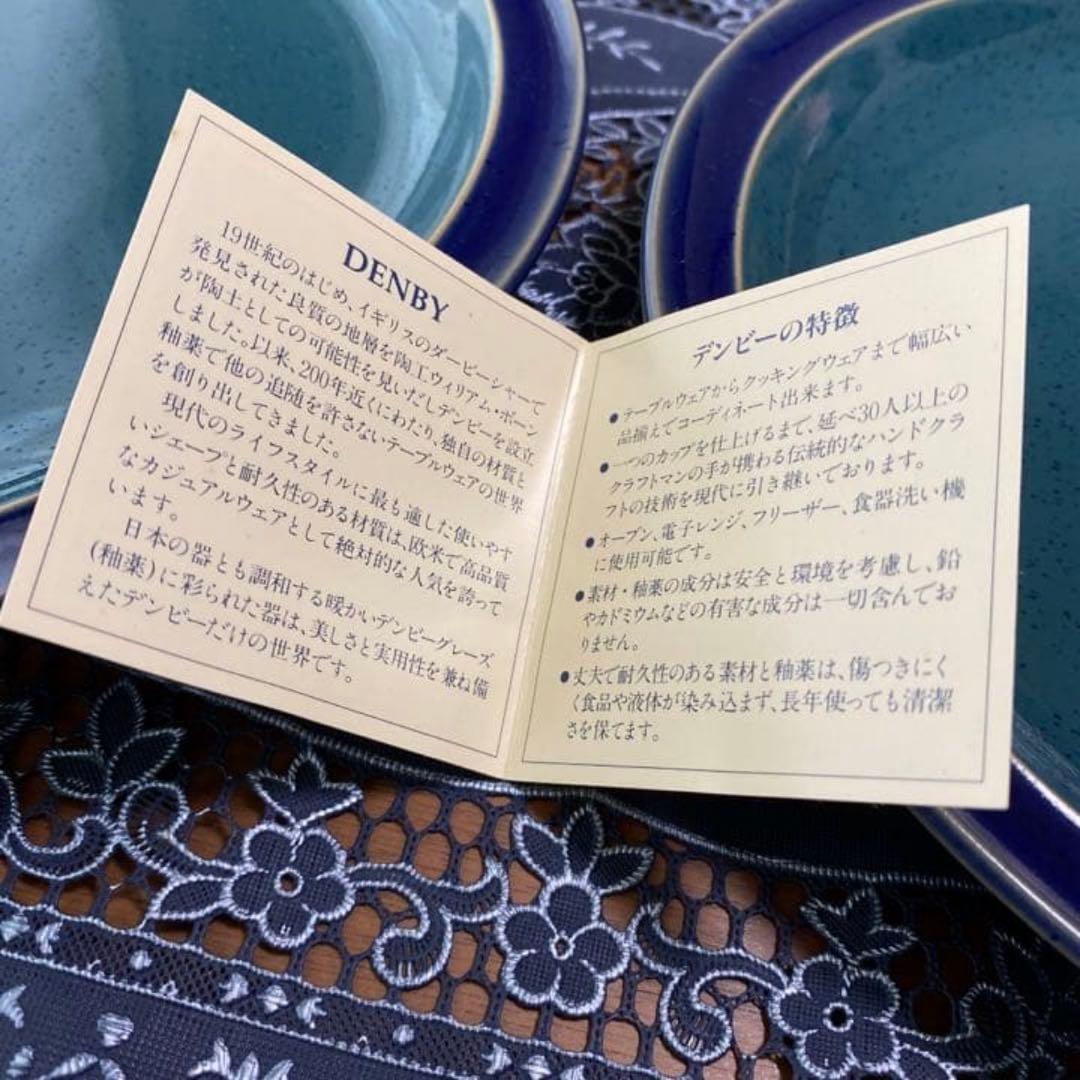 DENBY
19世紀のはじめ、イギリスのダービーシャーで
発見された良質の地層を陶工ウィリアム・ボーン
が陶土としての可能性を見いだしデンビーを設立
しました。以来、200年近くにわたり、独自の材質と
釉薬で他の追随を許さないテーブルウェアの世界
を創り出してきました。
現代のライフスタイルに最も適した使いやす
いシェープと耐久性のある材質は、欧米で高品質
なカジュアルウェアとして絶対的な人気を誇って
います。
日本の器とも調和する暖かいデンビーグレーズ
(釉薬)に彩られた器は、美しさと実用性を兼ね備
えたデンビーだけの世界です。
デンビーの特徴
●テーブルウェアからクッキングウェアまで幅広い
品揃えでコーディネート出来ます。
●一つのカップを仕上げるまで、延べ30人以上の
クラフトマンの手が携わる伝統的なハンドクラ
フトの技術を現代に引き継いでおります。
●オーブン、電子レンジ、フリーザー、食器洗い機
に使用可能です。
●素材・釉薬の成分は安全と環境を考慮し、鉛
やカドミウムなどの有害な成分は一切含んでお
りません。
●丈夫で耐久性のある素材と釉薬は、傷つきにく
く食品や液体が染み込まず、長年使っても清潔
さを保てます。